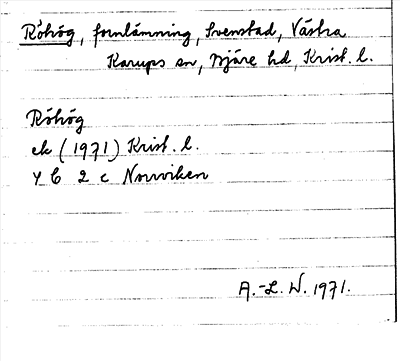 Röhög, fornlämning, Svenstad, Västra
Karups sn, Bjäre hd, Krist. l.
Röhög
ek (1971) Krist. l.
4 C 2 c Norrviken
A.-L. W. 1971.